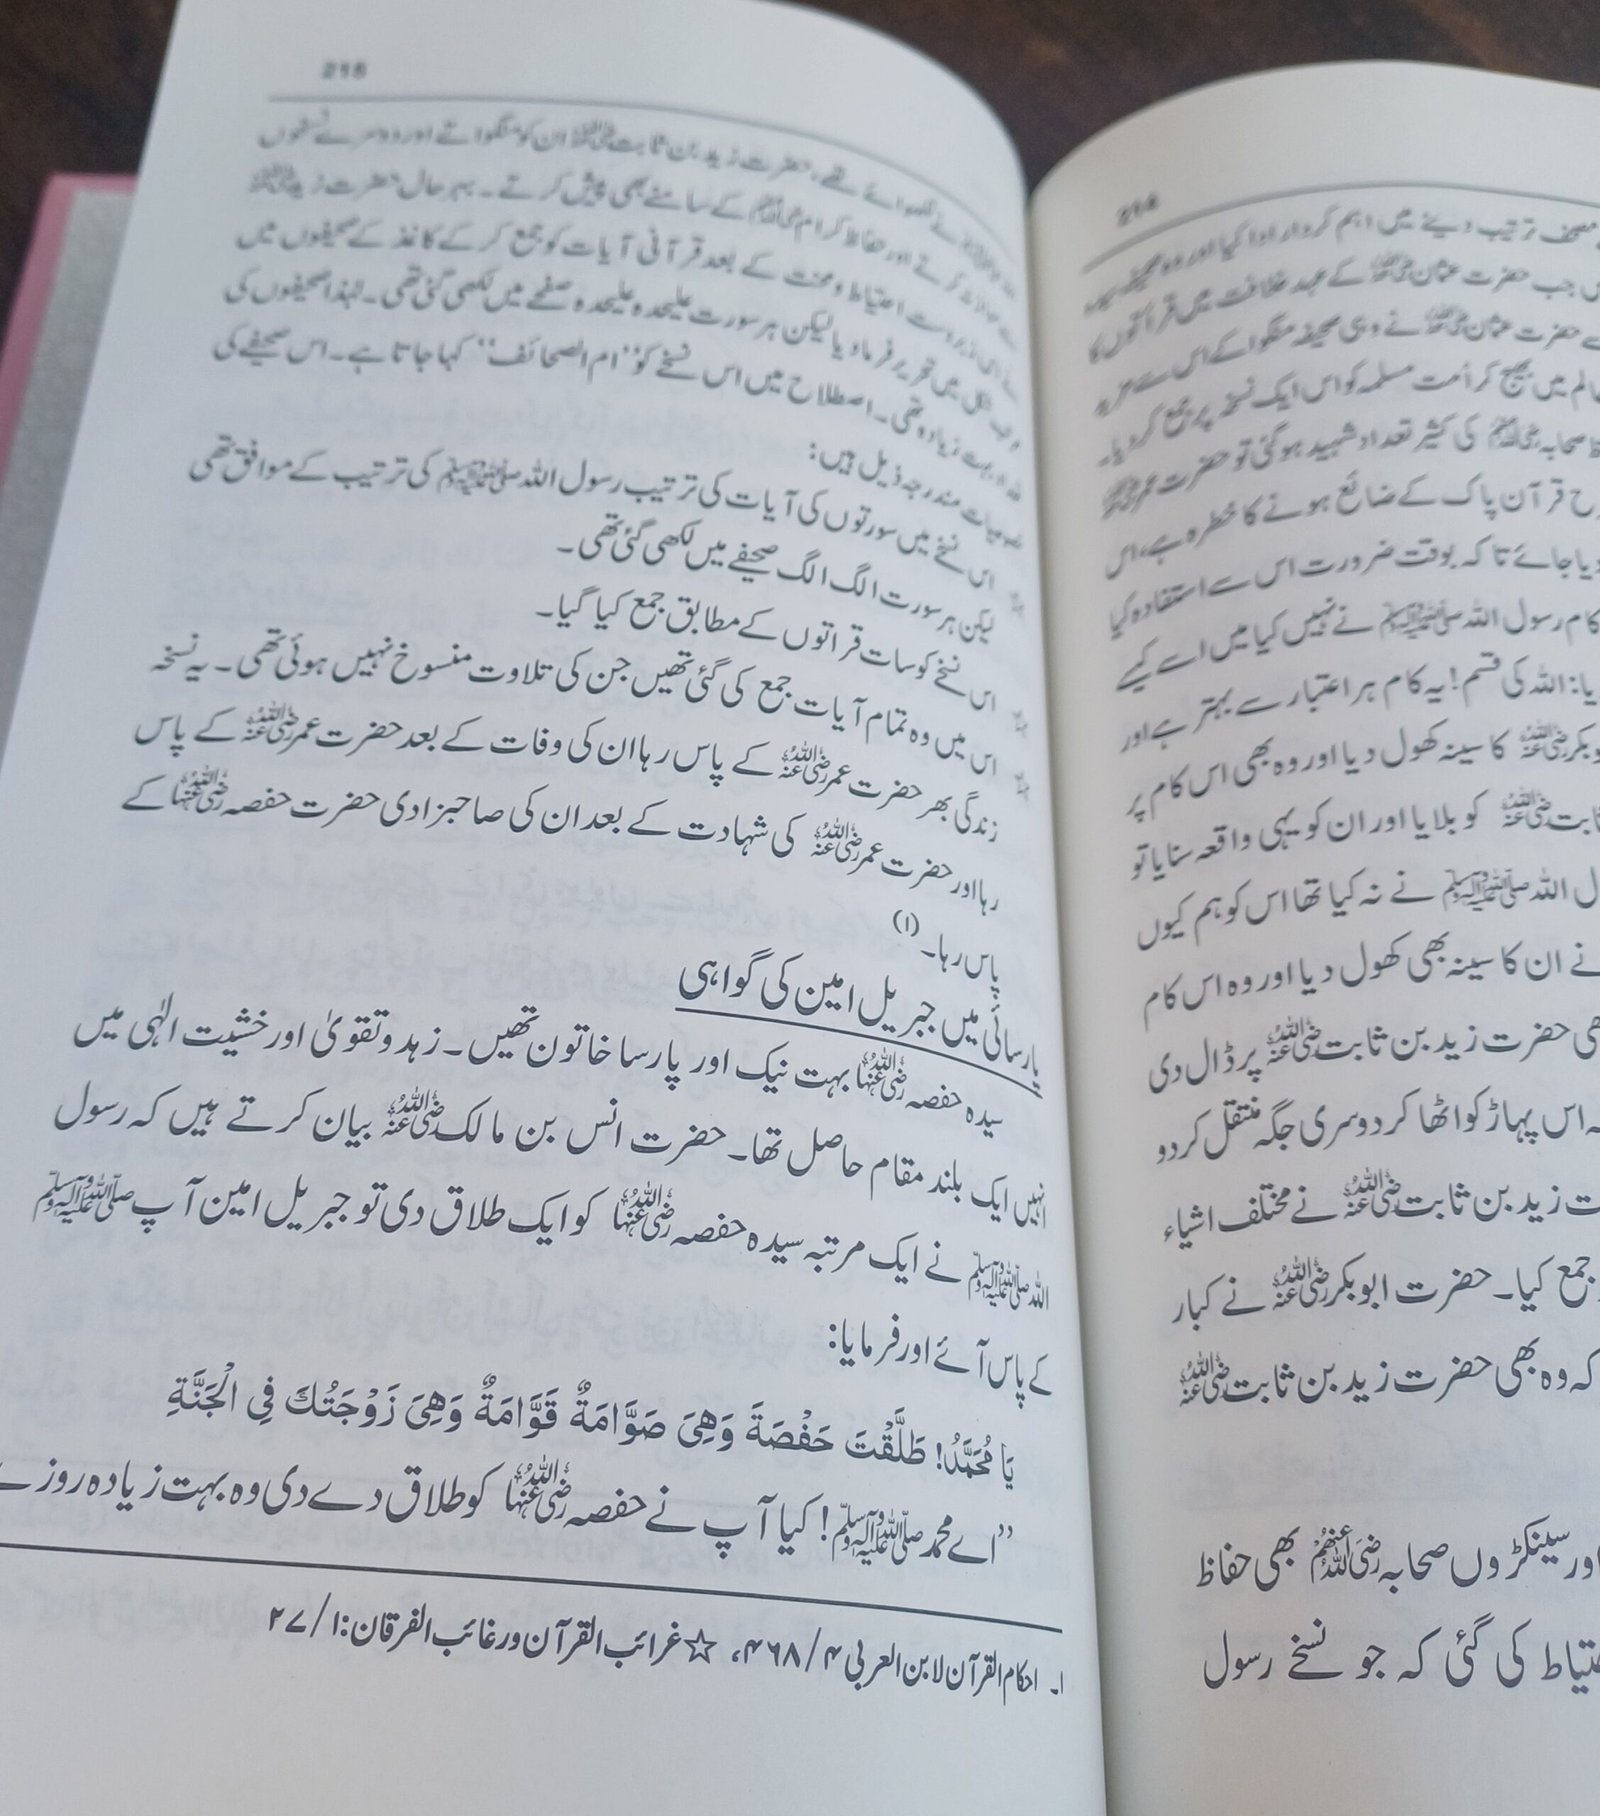 214
مصحف ترتیب دینے میں اہم کردار ادا کیا اور وہ صحیفہ
جب حضرت عثمان رضی اللہ عنہ کے عہد خلافت میں قراتوں کا
حضرت عثمان رضی اللہ عنہ نے وہی صحیفہ منگوا کے اس سے مزید
میں بھیج کر اُمت مسلمہ کو اس ایک نسخہ پر جمع کر دیا۔
صحابہ رضی اللہ عنہم کی کثیر تعداد شہید ہوگئی تو حضرت عمر رضی اللہ عنہ
قرآن پاک کے ضائع ہونے کا خطرہ ہے، اس
دیا جائے تاکہ بوقت ضرورت اس سے استفادہ کیا
کام رسول اللہ ﷺ نے نہیں کیا میں اسے کیسے
یا: اللہ کی قسم! یہ کام ہر اعتبار سے بہتر ہے اور
بکر رضی اللہ عنہ کا سینہ کھول دیا اور وہ بھی اس کام پر
ثابت رضی اللہ عنہ کو بلایا اور ان کو یہی واقعہ سنایا تو
ل اللہ ﷺ نے نہ کیا تھا اس کو ہم کیوں
نے ان کا سینہ بھی کھول دیا اور وہ اس کام
حضرت زید بن ثابت رضی اللہ عنہ پر ڈال دی
اس پہاڑ کو اٹھا کر دوسری جگہ منتقل کر دو
ت زید بن ثابت رضی اللہ عنہ نے مختلف اشیاء
جمع کیا۔ حضرت ابوبکر رضی اللہ عنہ نے کبار
کہ وہ بھی حضرت زید بن ثابت رضی اللہ عنہ
اور سینکڑوں صحابہ رضی اللہ عنہم بھی حفاظ
کی گئی کہ جو نسخے رسول
215
نے لکھوائے تھے، حضرت زید بن ثابت رضی اللہ عنہ ان کو منگواتے اور دوسرے نسخوں
کرتے اور حفاظ کرام رضی اللہ عنہم کے سامنے بھی پیش کرتے۔ بہر حال حضرت زید رضی اللہ عنہ
زبردست احتیاط و محنت کے بعد قرآنی آیات کو جمع کر کے کاغذ کے صحیفوں میں
شکل میں تحریر فرما دیا لیکن ہر سورت علیحدہ علیحدہ صفحے میں لکھی گئی تھی۔ لہٰذا صحیفوں کی
بہت زیادہ تھی۔ اصطلاح میں اس نسخے کو ”ام الصحائف“ کہا جاتا ہے۔ اس صحیفے کی
خصوصیات مندرجہ ذیل ہیں:
☆ اس نسخے میں سورتوں کی آیات کی ترتیب رسول اللہ ﷺ کی ترتیب کے موافق تھی
لیکن ہر سورت الگ الگ صحیفے میں لکھی گئی تھی۔
☆ اس نسخے کو سات قراتوں کے مطابق جمع کیا گیا۔
☆ اس میں وہ تمام آیات جمع کی گئی تھیں جن کی تلاوت منسوخ نہیں ہوئی تھی۔ یہ نسخہ
زندگی بھر حضرت عمر رضی اللہ عنہ کے پاس رہا ان کی وفات کے بعد حضرت عمر رضی اللہ عنہ کے پاس
رہا اور حضرت عمر رضی اللہ عنہ کی شہادت کے بعد ان کی صاحبزادی حضرت حفصہ رضی اللہ عنہا کے
پاس رہا۔ (۱)
پارسائی میں جبریل امین کی گواہی
سیدہ حفصہ رضی اللہ عنہا بہت نیک اور پارسا خاتون تھیں۔ زہد و تقویٰ اور خشیت الٰہی میں
انہیں ایک بلند مقام حاصل تھا۔ حضرت انس بن مالک رضی اللہ عنہ بیان کرتے ہیں کہ رسول
اللہ ﷺ نے ایک مرتبہ سیدہ حفصہ رضی اللہ عنہا کو ایک طلاق دی تو جبریل امین آپ ﷺ
کے پاس آئے اور فرمایا:
يَا مُحَمَّدُ! طَلَّقْتَ حَفْصَةَ وَهِيَ صَوَّامَةٌ قَوَّامَةٌ وَهِيَ زَوْجَتُكَ فِي الْجَنَّةِ
”اے محمد ﷺ! کیا آپ نے حفصہ رضی اللہ عنہا کو طلاق دے دی وہ بہت زیادہ روزے
۱۔ احکام القرآن لابن العربی ۴/۴۶۸، ☆ غرائب القرآن ورغائب الفرقان: ۱/۲۷